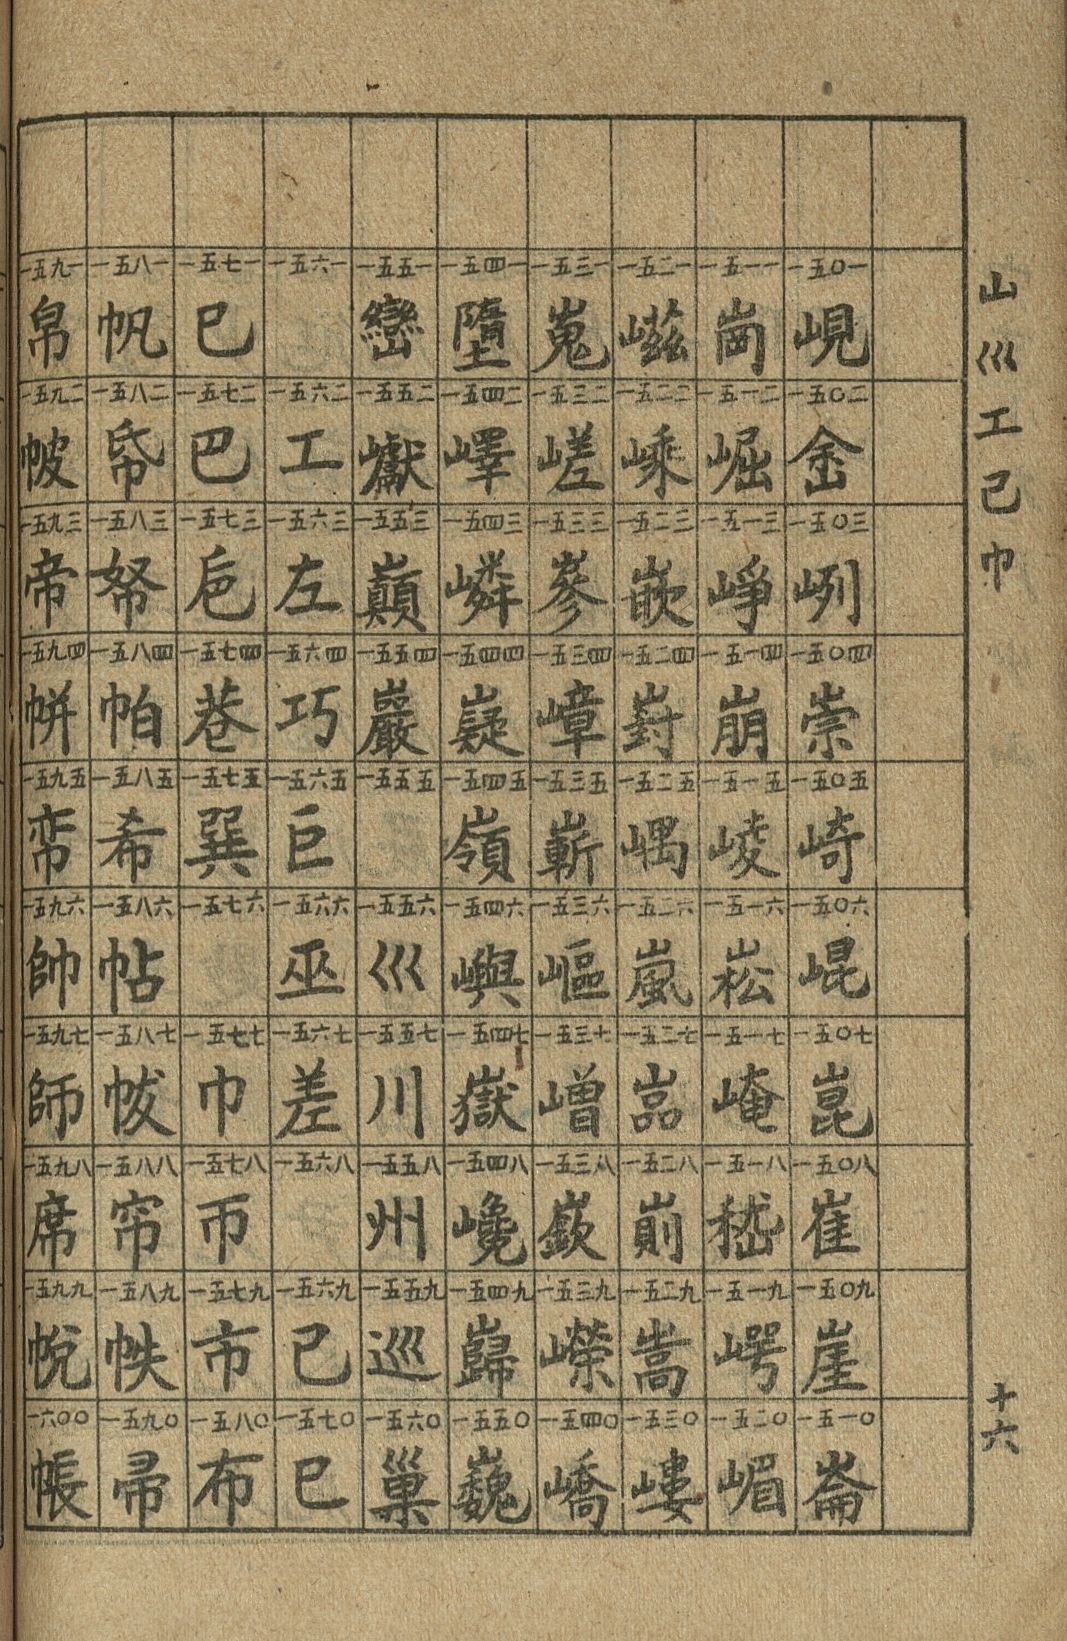 山巛工己巾
十六
一五〇一 峴
一五〇二 峹
一五〇三 峛
一五〇四 崇
一五〇五 崎
一五〇六 崐
一五〇七 崑
一五〇八 崔
一五〇九 崖
一五一〇 崙
一五一一 崗
一五一二 崛
一五一三 崢
一五一四 崩
一五一五 崚
一五一六 崧
一五一七 崦
一五一八 嵇
一五一九 崿
一五二〇 嵋
一五二一 嵫
一五二二 嵊
一五二三 嵌
一五二四 崶
一五二五 嵎
一五二六 嵐
一五二七 嵒
一五二八 崱
一五二九 嵩
一五三〇 嶁
一五三一 嵬
一五三二 嵯
一五三三 嵾
一五三四 嶂
一五三五 嶄
一五三六 嶇
一五三七 嶒
一五三八 嶔
一五三九 嶸
一五四〇 嶠
一五四一 墮
一五四二 嶧
一五四三 嶙
一五四四 嶷
一五四五 嶺
一五四六 嶼
一五四七 嶽
一五四八 巉
一五四九 巋
一五五〇 巍
一五五一 巒
一五五二 巘
一五五三 巔
一五五四 巖
一五五五
一五五六 巛
一五五七 川
一五五八 州
一五五九 巡
一五六〇 巢
一五六一
一五六二 工
一五六三 左
一五六四 巧
一五六五 巨
一五六六 巫
一五六七 差
一五六八
一五六九 己
一五七〇 已
一五七一 巳
一五七二 巴
一五七三 巵
一五七四 巷
一五七五 巽
一五七六
一五七七 巾
一五七八 帀
一五七九 市
一五八〇 布
一五八一 帆
一五八二 帋
一五八三 帑
一五八四 帕
一五八五 希
一五八六 帖
一五八七 帗
一五八八 帘
一五八九 帙
一五九〇 帚
一五九一 帛
一五九二 帔
一五九三 帝
一五九四 帡
一五九五 帟
一五九六 帥
一五九七 師
一五九八 席
一五九九 帨
一六〇〇 帳